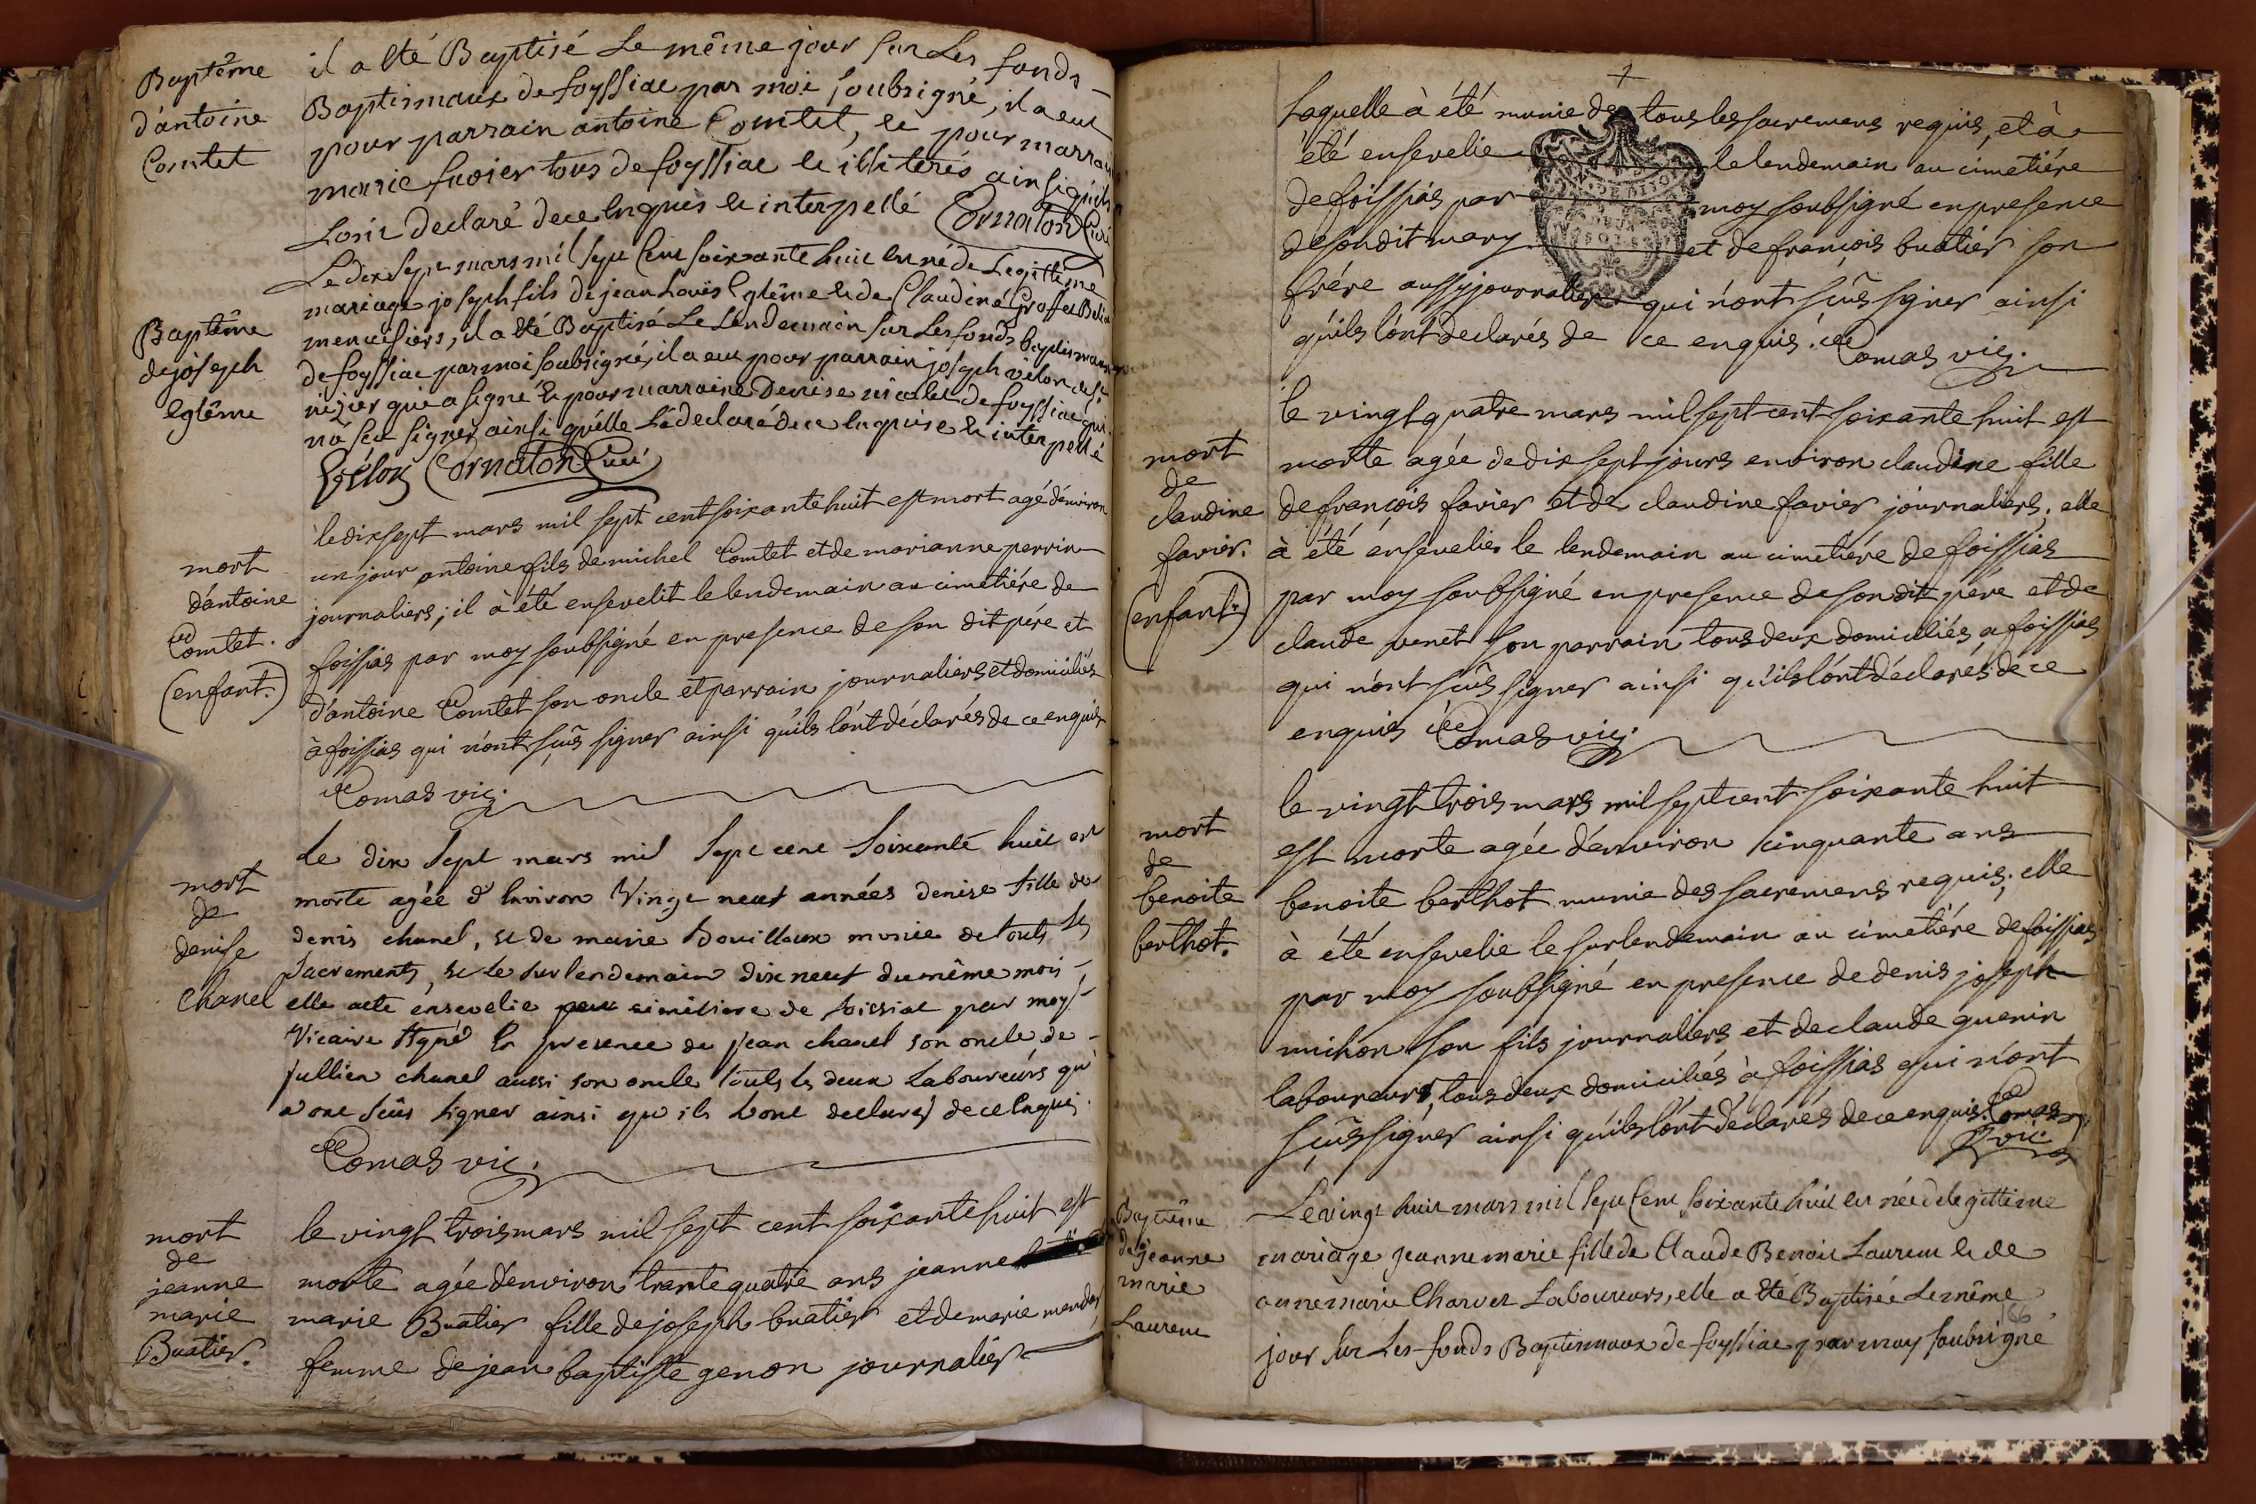 Baptême
d'antoine
Comtet
il a été Baptisé Le même jour sur Les fonds
Baptismaux de foyssiac par moi soubsigné, il a eut
pour parrain antoine Comtet, et pour marrain
marie favier tous de foyssiac et illiterés ainsi qu'ils
Lont declaré de ce enquis et interpellé Cornaton Curé
Baptême
de joseph
eglême
Le dix sept mars mil sept Cent soixante huit est né de Legitteme
mariage joseph fils de jean Louis Eglême et de Claudine
menuisiers, il a été Baptisé Le Lendemain sur Les fonds baptismaux
de foyssiac par moi soubsigné, il a eut pour parrain joseph vélon
qui a signé et pour marraine Denise de foyssiac qui
n'a sçu signer ainsi qu'elle L'a declaré de ce enquise et interpellé
Vélon Cornaton Curé
mort
d'antoine
Comtet.
(enfant.)
le dix sept mars mil sept cent soixante huit est mort agé d'environ
un jour antoine fils de michel Comtet et de marianne perrin
journaliers; il à été ensevelit le lendemain au cimetiére de
foissias par moy soubsigné en presence de son dit pére et
d'antoine Comtet son oncle et parrain journaliers et domiciliés
à foissias qui n'ont sçûs signer ainsi qu'ils l'ont déclarés de ce enquis
Comas vic.
mort
de
denise
Chanel
Le dix sept mars mil sept cent soixante huit est
morte agée d'environ Vingt neuf années denise fille de
denis chanel, et de marie Bouilloux munie de touts les
Sacrements, et le surlendemain dix neuf du même mois
elle a été ensevelie cimetiere de foissiat par moy
Vicaire signé En presence de jean chanel son oncle de
jullien chanel aussi son oncle touts les deux Laboureurs qui
n'ont sçus signer ainsi qu'ils L'ont declares de ce enquis.
Comas vic.
mort
de
jeanne
marie
Buatier.
le vingt trois mars mil sept cent soixante huit est
morte agée d'environ trante quatre ans jeanne
marie Buatier fille de joseph buatier et de marie
femme de jean baptiste genon journalier
Laquelle à été munie de tous les sacremens requis, et à
été ensevelie le lendemain au cimetiére
de foissias par moy soubsigné en presence
de son dit mary et de françois buatier son
frére aussy journalier qui n'ont sçûs signer ainsi
qu'ils l'ont declarés de ce enquis. Comas vic.
mort
de
claudine
favier.
(enfant.)
le vingt quatre mars mil sept cent soixante huit est
morte agée de dix sept jours environ claudine fille
de françois favier et de claudine favier journaliers; elle
à été ensevelie le lendemain au cimetiére de foissias
par moy soubsigné en presence de son dit pére et de
claude venet son parrain tous deux domiciliés a foissias
qui n'ont sçûs signer ainsi qu'ils l'ont déclarés de ce
enquis Comas vic.
mort
de
benoite
berthot.
le vingt trois mars mil sept cent soixante huit
est morte agée d'environ cinquante ans
benoite berthot munie des sacremens requis; elle
à été ensevelie le surlendemain au cimetiére de foissias
par moy soubsigné en presence de denis joseph
michon son fils journaliers et de claude guenin
laboureurs, tous deux domiciliés à foissias qui n'ont
sçûs signer ainsi qu'ils l'ont déclarés de ce enquis. Comas
vic.
Baptême
de jeanne
marie
Laurent
Le vingt huit mars mil sept Cent soixante huit est née de legittime
mariage jeanne marie fille de Claude Benoit Laurent et de
anne marie Charvet Laboureurs, elle a été Baptisée Le même
jour sur Les fonds Baptismaux de foyssiac par moy soubsigné
66